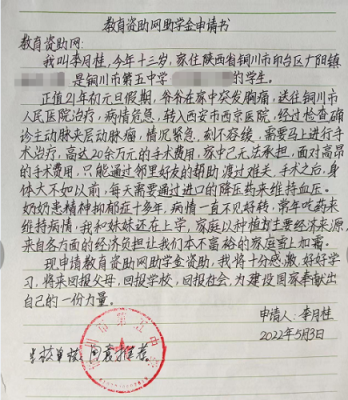 教育资助网助学金申请书
教育资助网:
我叫李月桂,今年十三岁,家住陕西省铜川市印台区广阳镇
是铜川市第五中学 的学生。
正值21年初元旦假期,爷爷在家中突发胸痛,送往铜川市
人民医院治疗,病情危急,转入西安市西京医院,经过检查确
诊主动脉夹层动脉瘤,情况紧急,刻不容缓,需要马上进行手
术治疗,高达20余万元的手术费用,家中已无法承担,面对高昂
的手术费用,只能通过邻里好友的帮助渡过难关,手术之后,身
体大不如以前,每天需要通过进口的降压药来维持血压。
奶奶患精神抑郁症十多年,病情一直不见好转,常年吃药来
维持病情,我和妹妹还在上学,家庭以种植为主要经济来源,
来自各方面的经济负担让我们本不富裕的家庭雪上加霜。
现申请教育资助网助学金资助,我将十分感激,好好学
习,将来回报父母,回报学校,回报社会,为建设国家奉献出
自己的一份力量。
申请人:李月桂
2022年5月3日
学校审核:同意推荐
铜川市第五中学